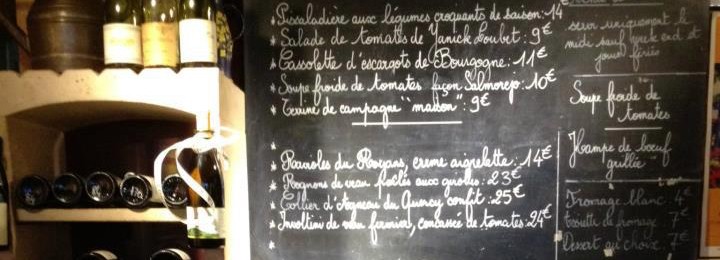 * Pissaladière aux légumes croquants de saison: 14 €
* Salade de tomates de Yanick Loubet: 9€
* Cassolette d'escargots de Bourgogne: 11€
* Soupe froide de tomates façon Salmorejo: 10€
* Terrine de campagne "maison": 9€
*
* Ravioles du Royans, creme aigrelette: 14€
* Rognons de veau poêlés aux girolles: 23€
* Collier d'Agneau du Quercy confit: 25€
* Involtini de veau fermier, concassée de tomates: 24€
*
servi uniquement le
midi sauf week end et
jours fériés
Soupe froide de
tomates
Hampe de boeuf
grillée
Fromage blanc 4€
Assiette de fromage 7€
Dessert au choix 7€